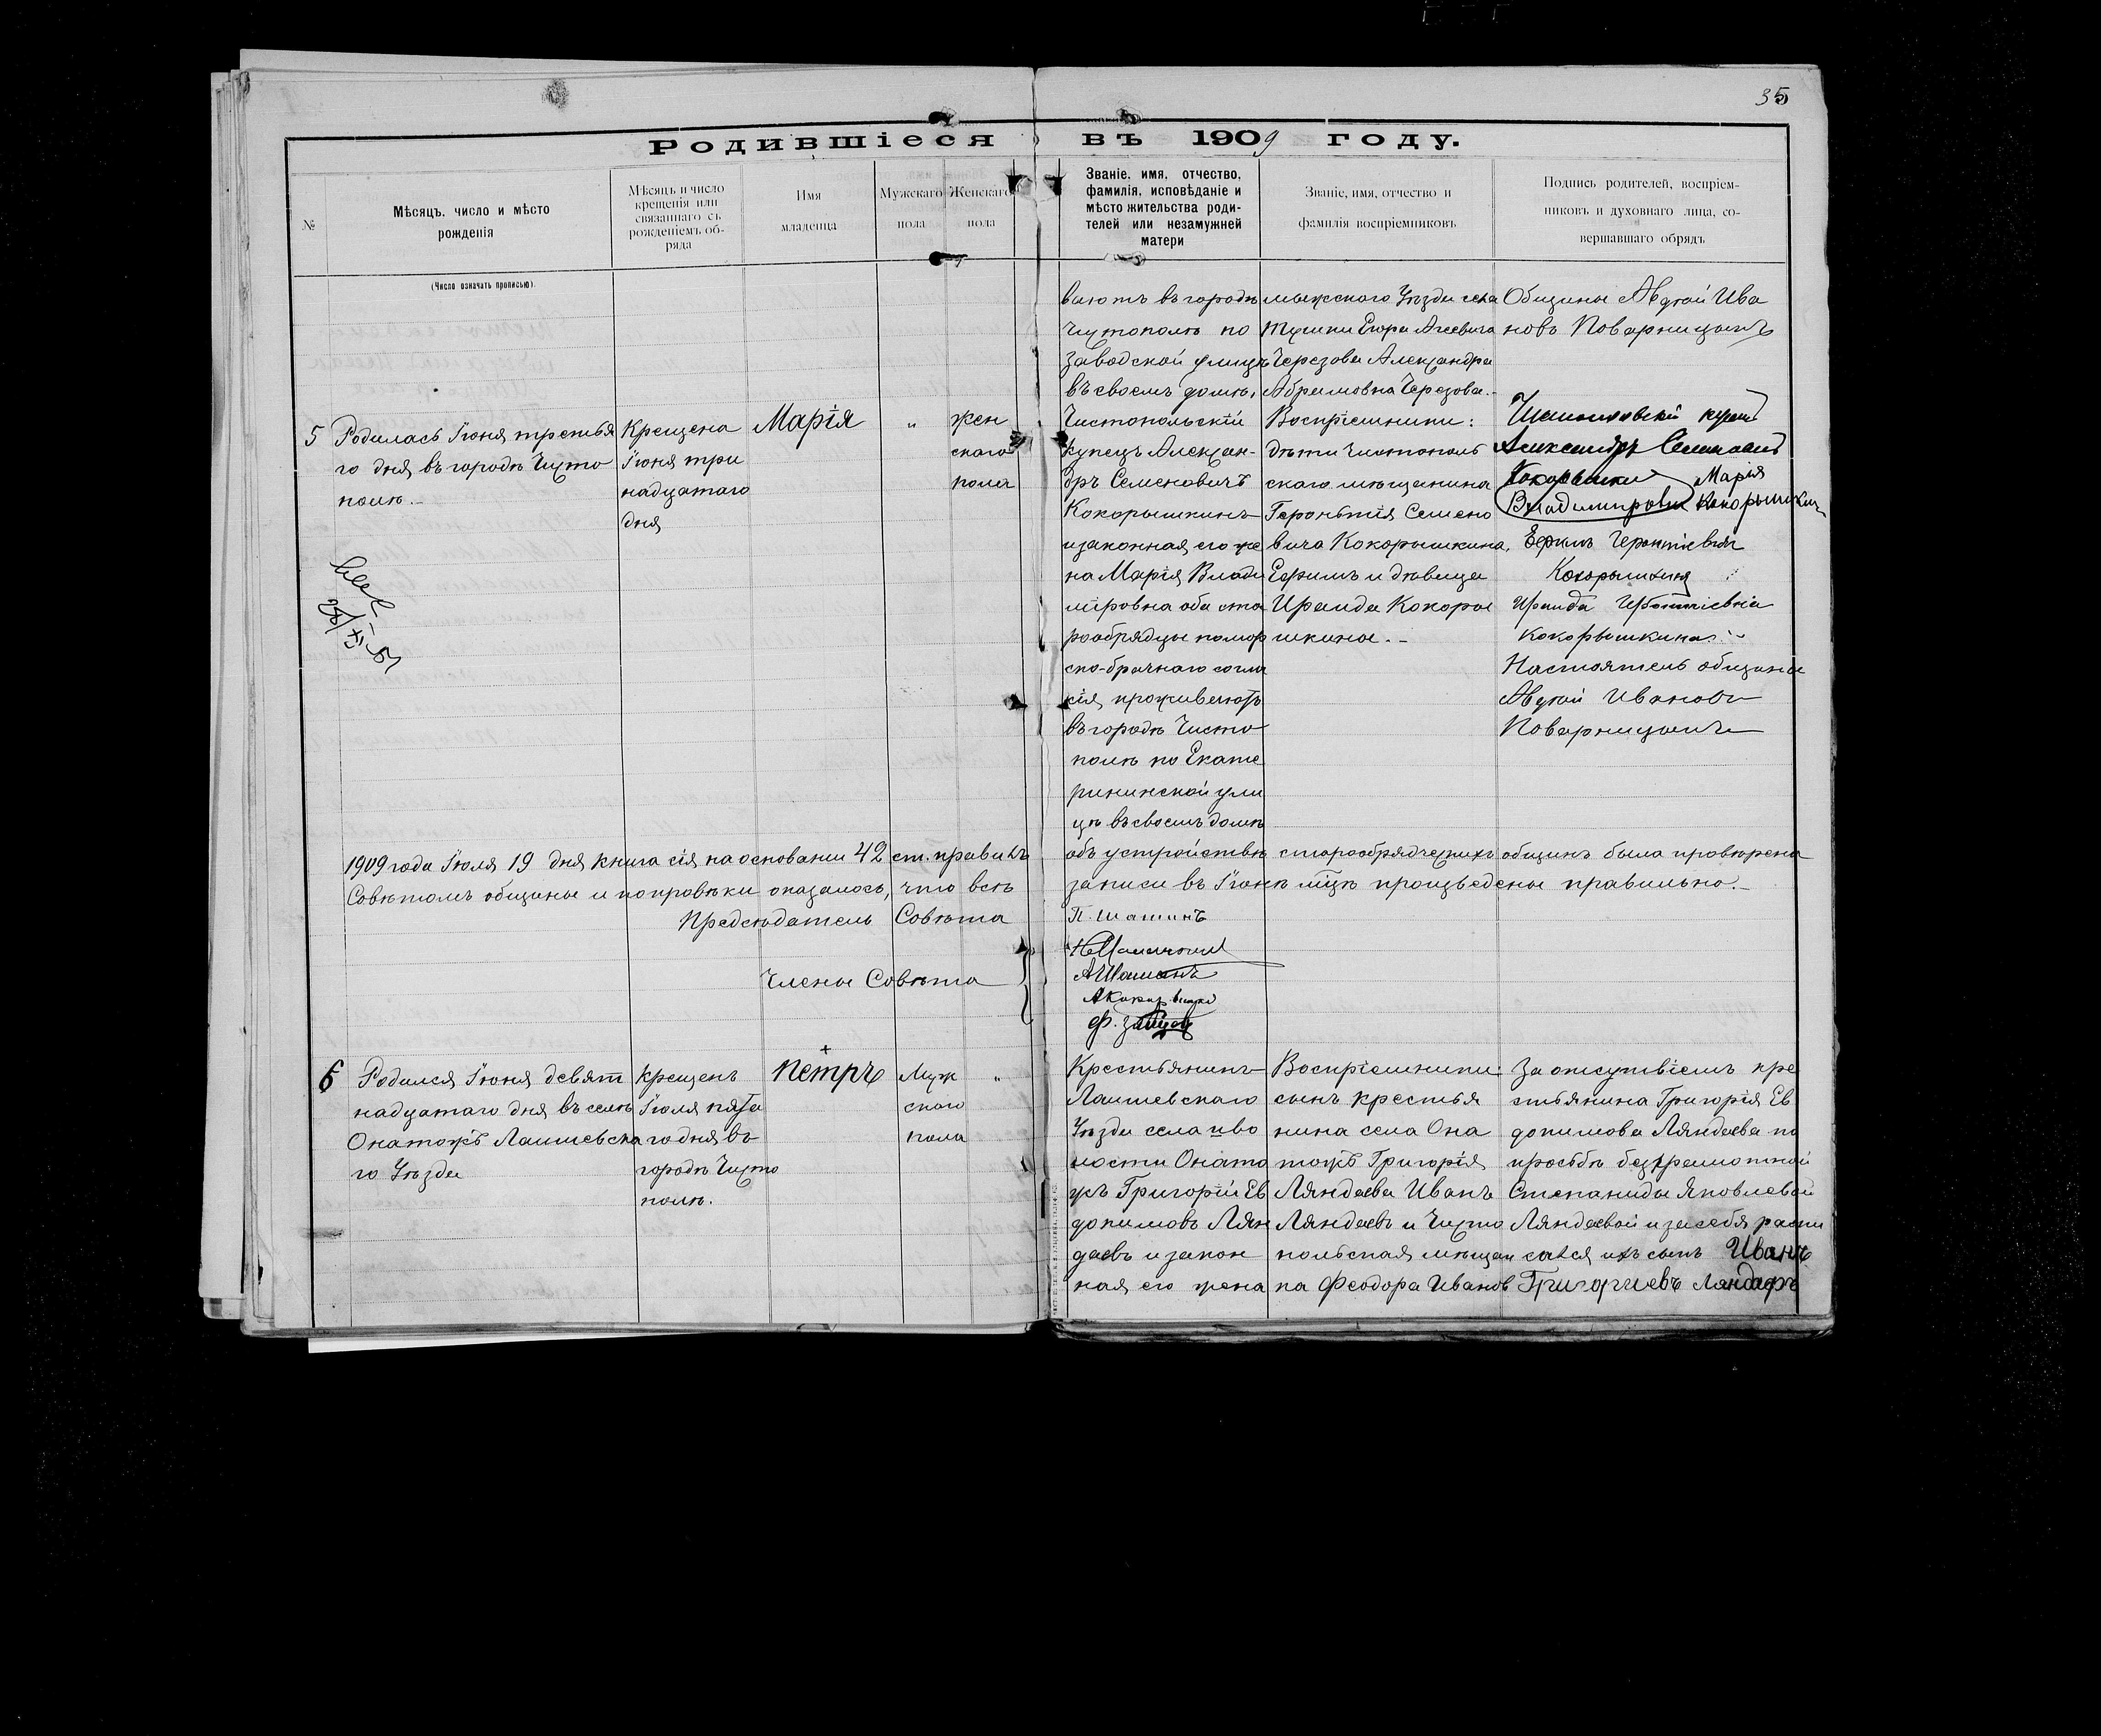 35
Родившіеся въ 1909 году.
№
Мѣсяцъ, число и мѣсто
рожденія
Мѣсяцъ и число
крещенія или
связаннаго съ
рожденіемъ об-
ряда
Имя
младенца
Мужскаго
пола
Женскаго
пола
Званіе, имя, отчество,
фамилія, исповѣданіе и
мѣсто жительства роди-
телей или незамужней
матери
Званіе, имя, отчество и
фамилія воспріемниковъ
Подпись родителей, воспріем-
никовъ и духовнаго лица, со-
вершавшаго обрядъ
(Число означать прописью).
вают въ городѣ
Чистополѣ по
Заводской улицѣ
въ своемъ домѣ,
мыжского Уѣзда села
Тушки Егора Агеевича
Черезова Александра
Абрамовна Черезова.-
Общины Авдѣй Ива
новъ Поварницынъ
5
Родилась Іюня третья
го дня, въ городѣ Чисто
полѣ.-
Крещена
Іюня три
надцатаго
дня
Марія
"
жен
скаго
пола
Чистопольскій
купецъ Алексан-
дръ Семеновичъ
Кокорышкинъ
и законная его же
на Марія Влади
міровна оба ста
рообрядцы помор
ско-брачнаго согла
сія, проживаютъ
въ городѣ Чисто
полѣ по Екате
рининской ули
цѣ въ своемъ домѣ
Воспріемники:
дѣти Чистополь
скаго мѣщанина
Геронтія Семено
вича Кокорышкина,
Ефимъ и дѣвица
Ираида Кокоры
шкины.-
Александръ Семеновъ
Кокорышкин Марія
Владимировна Кокорышкин
Ефимъ Геронтіевичъ
Кокорышкинъ
Ираида Геронтіевна
Кокорышкина.
Настоятель общины
Авдѣй Ивановъ
Поварницынъ
1909 года Іюля 19 дня книга сія на основаніи 42 ст. правилъ объ устройствѣ старообрядческихъ общинъ была провѣрена
Совѣтомъ общины и по провѣрки оказалось, что всѣ записи въ Іюнѣ мѣцѣ произведены правильно.-
Предсѣдатель Совѣта П. Шашинъ
Члены Совѣта
А Шашинъ
Ф. Зайцев
6
Родился Іюня девят
надцатаго дня въ селѣ
Онатожъ Лаишевска
го Уѣзда
Крещенъ
Іюля пята
го дня въ
городѣ Чисто
полѣ.
Петръ
Муж
ского
пола
"
Крестьянинъ
Лаишевскаго
Уѣзда села и во
лости Онато
жъ Григорій Ев
докимовъ Лян
даевъ и закон
ная его жена
Воспріемники:
сынъ крестья
нина села Она
тожъ Григорія
Ляндаева Иванъ
Ляндаевъ и Чисто
польская мѣщан
ка Феодора Иванов
За отсутвіемъ кре
стьянина Григорія Ев
докимова Ляндаева по
просьбѣ безграмотной
Степаниды Яковлевой
Ляндаевой и за себя распи
сался ихъ сынъ Иванъ
Григориевъ Ляндаевъ